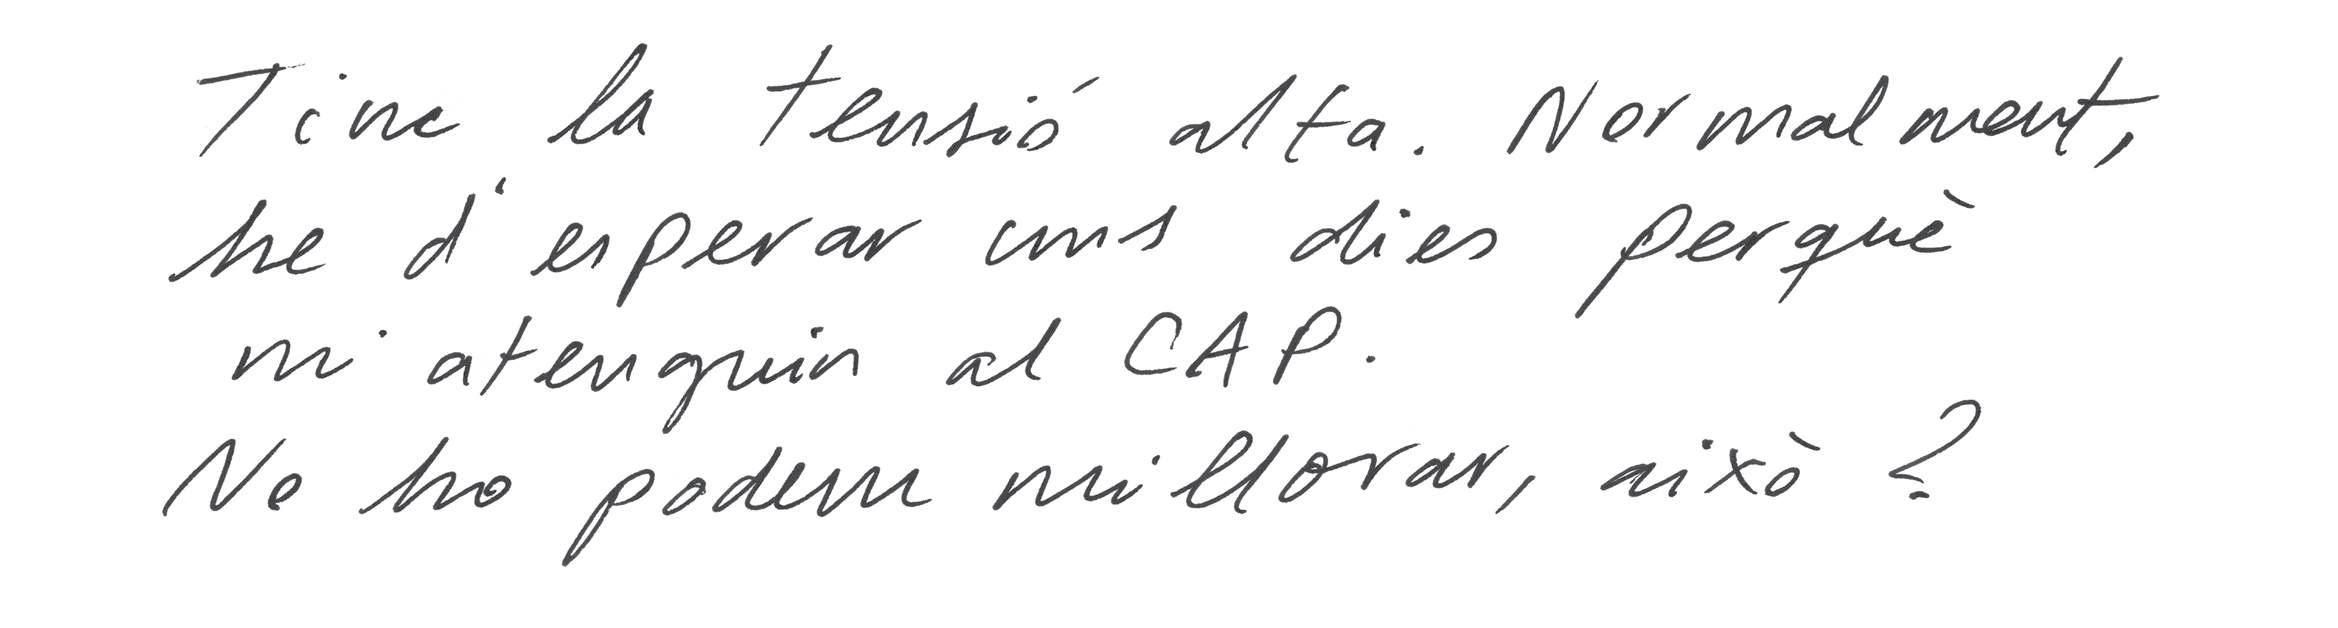 Tinc la tensió alta. Normalment,
he d'esperar uns dies perquè
m'atenguin al CAP.
No ho podem millorar, això?